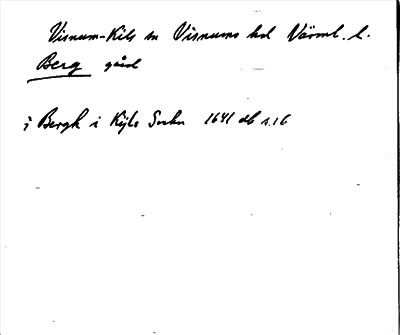 Visnum-Kils sn Visnums hd Värml. l.
Berg gård
i Bergh i Kijls Sockn 1641 db s.16